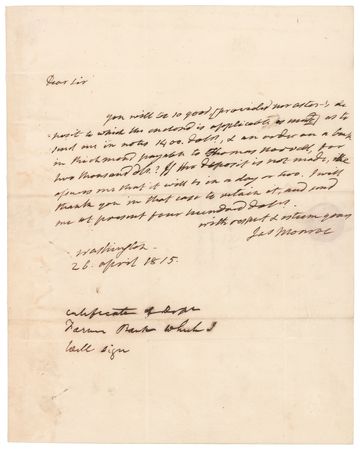 Dear Sir
You will be so good, (provided mr astor's de
posit to which the enclosed is applicable is made) as to
send me in notes 1400. dolls, & an order on a bank
in Richmond payable to Thomas for
two thousand dls. If the deposit is not made, &
assures me that it will be in a day or two. I will
thank you in that case to retain it, and send
me at present four hundred dolls.
with respect & esteem yours
Jas Monroe
Washington
26. april 1815.
certificate of
Farmers Bank which I
will sign